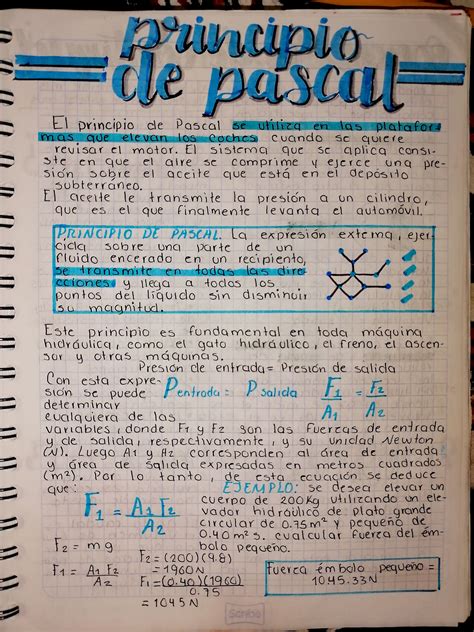 principio
de pascal
El principio de Pascal se utiliza en las platafor
mas que elevan los coches cuando se quiere
revisar el motor. El sistema que se aplica consi
ste en que el aire se comprime y ejerce una pre-
sión sobre el aceite que está en el depósito
subterraneo.
El aceite le transmite la presión a un cilindro,
que es el que finalmente levanta el automóvil.
PRINCIPIO DE PASCAL. La expresión externa, ejer-
cida sobre una parte de un
fluido encerado en un recipiente,
se transmite en todas las dire
cciones y llega a todos los
puntos del líquido sin disminuir
su magnitud.
Este principio es fundamental en toda máquina
hidráulica, como el gato hidráulico, el freno, el ascen-
sor y otras máquinas.
Presión de entrada = Presión de salida
Con esta expre-
sión se puede
determinar
cualquiera de las
P entrada = P salida F1/A1 = F2/A2
variables, donde F1 y F2 son las fuerzas de entrada
y de salida, respectivamente, y su unidad Newton
(N). Luego A1 y A2 corresponden al área de entrada
y área de salida expresadas en metros cuadrados
(m²). Por lo tanto, de esta ecuación se deduce
que:
F1 = A1 F2/A2
EJEMPLO: se desea elevar un
cuerpo de 200Kg utilizando un ele-
vador hidráulico de plato grande
circular de 0.75m² y pequeño de
0.40m² s. cualcular fuerza del ém-
bolo pequeño.
F2 = mg
F1 = A1 F2/A2
F2 = (200)(9.8)
= 1960N
F1 = (0.40)(1960)/0.75
= 1045N
Fuerza émbolo pequeño =
1045.33N